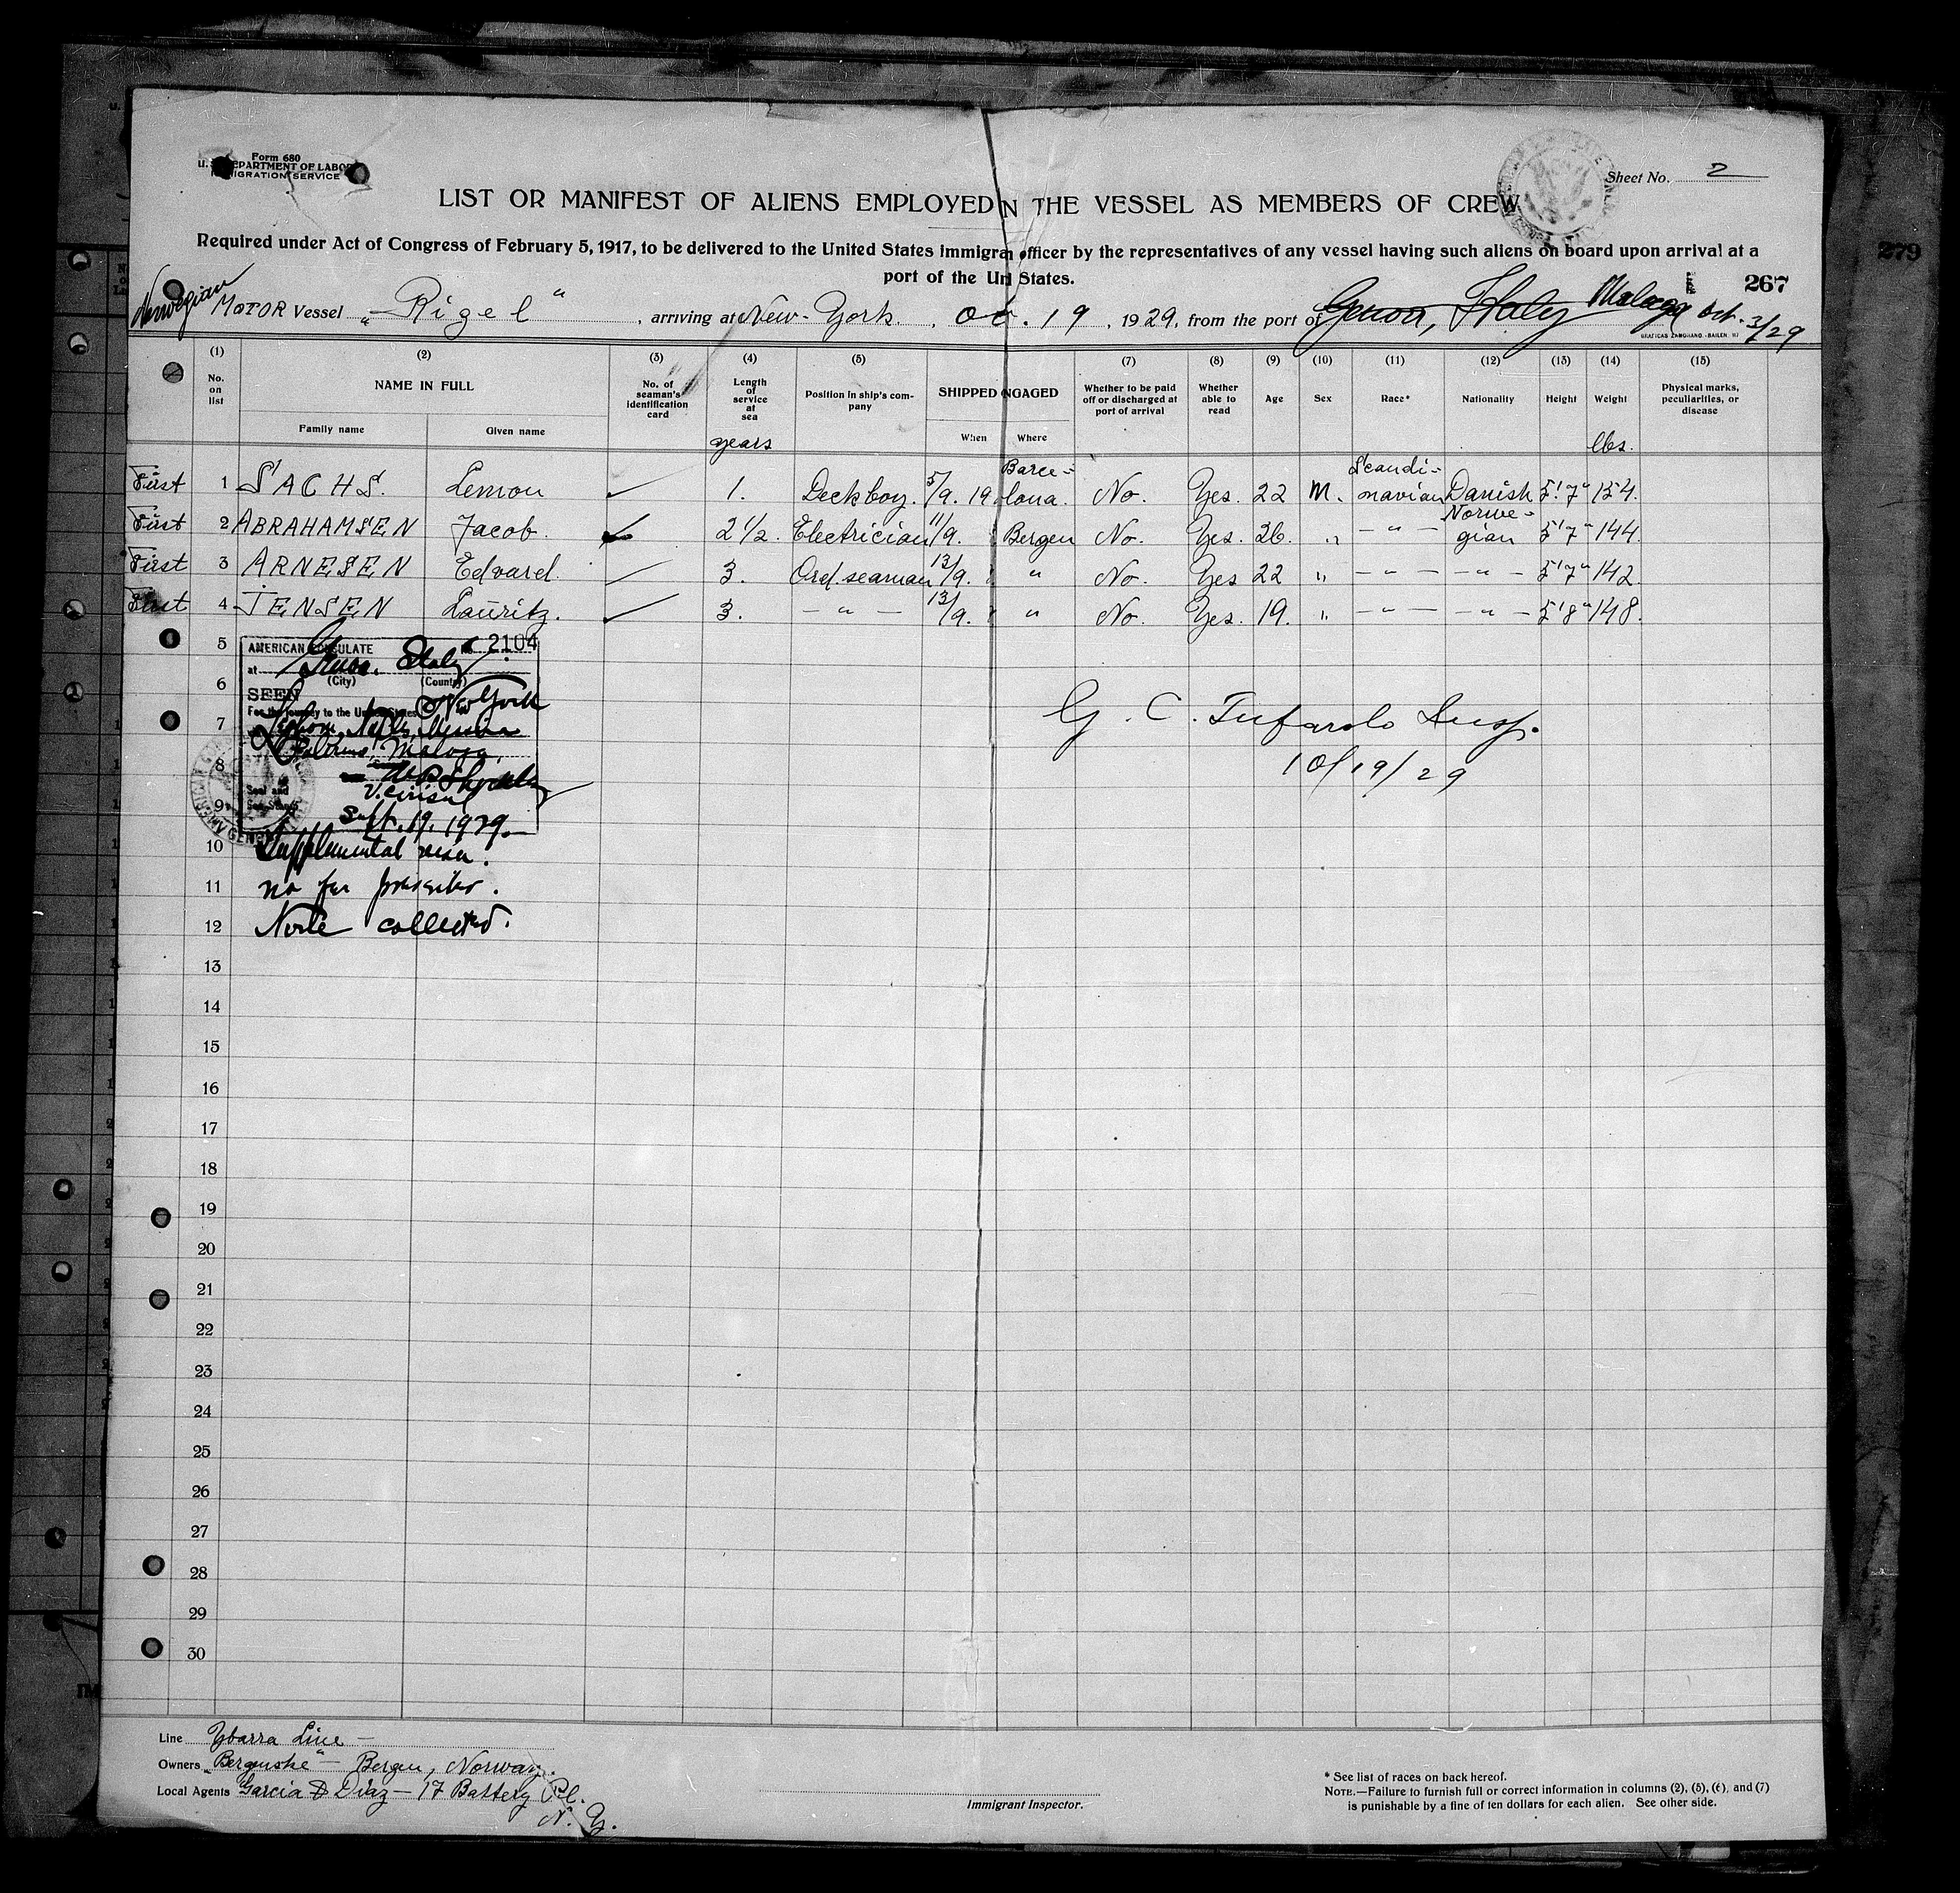 Form 680
U. S. DEPARTMENT OF LABOR
IMMIGRATION SERVICE
Sheet No. 2
LIST OR MANIFEST OF ALIENS EMPLOYED N THE VESSEL AS MEMBERS OF CREW
Required under Act of Congress of February 5, 1917, to be delivered to the United States immigran officer by the representatives of any vessel having such aliens on board upon arrival at a
port of the Uni States.
267
279
Norwegian MOTOR Vessel „Rigel“, arriving at New-York., Oct. 19, 1929, from the port of Genoa, Italy Malaga Oct. 3/29
(1) (2) (3) (4) (5) (7) (8) (9) (10) (11) (12) (13) (14) (15)
No. on list
NAME IN FULL
Family name
Given name
No. of seaman's identification card
Length of service at sea
years
Position in ship's company
SHIPPED NGAGED
When
Where
Whether to be paid off or discharged at port of arrival
Whether able to read
Age
Sex
Race*
Nationality
Height
Weight
lbs.
Physical marks, peculiarities, or disease
First 1 SACHS. Lemon 1. Deckboy. 5/9. 19 Barce=lona. No. Yes. 22 M. Scandi=navian Danish 5'7" 154.
First 2 ABRAHAMSEN Jacob. 2 1/2. Electrician 11/9. Bergen No. Yes. 26. " — " — Norwe=gian 5'7" 144.
First 3 ARNESEN Edvard. 3. Ord. seaman 13/9. " No. Yes 22 " — " — — " — 5'7" 142.
First 4 JENSEN Lauritz. 3. — " — 13/9. " No. Yes. 19. " — " — — " — 5'8" 148.
5
AMERICAN CONSULATE No 2104
at Genoa. Italy
(City) (Country)
6
SEEN
For the journey to the United States New York
7
Leghorn, Naples, Messina
Palermo, Malaga
8
Seal and
V. Consul
9
Sept. 19, 1929.
10 Supplemental visa.
11 no fee prescribed.
12 Note collected.
G. C. Tufarolo Insp.
10/19/29
13
14
15
16
17
18
19
20
21
22
23
24
25
26
27
28
29
30
Line Ybarra Line —
Owners „Bergenske“ — Bergen, Norway.
Local Agents Garcia & Diaz — 17 Battery Pl.
N. Y.
Immigrant Inspector.
* See list of races on back hereof.
NOTE.—Failure to furnish full or correct information in columns (2), (5), (6), and (7)
is punishable by a fine of ten dollars for each alien. See other side.